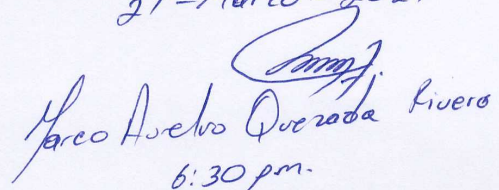 Marco Aurelio Quezada Rivera
6:30 p.m.